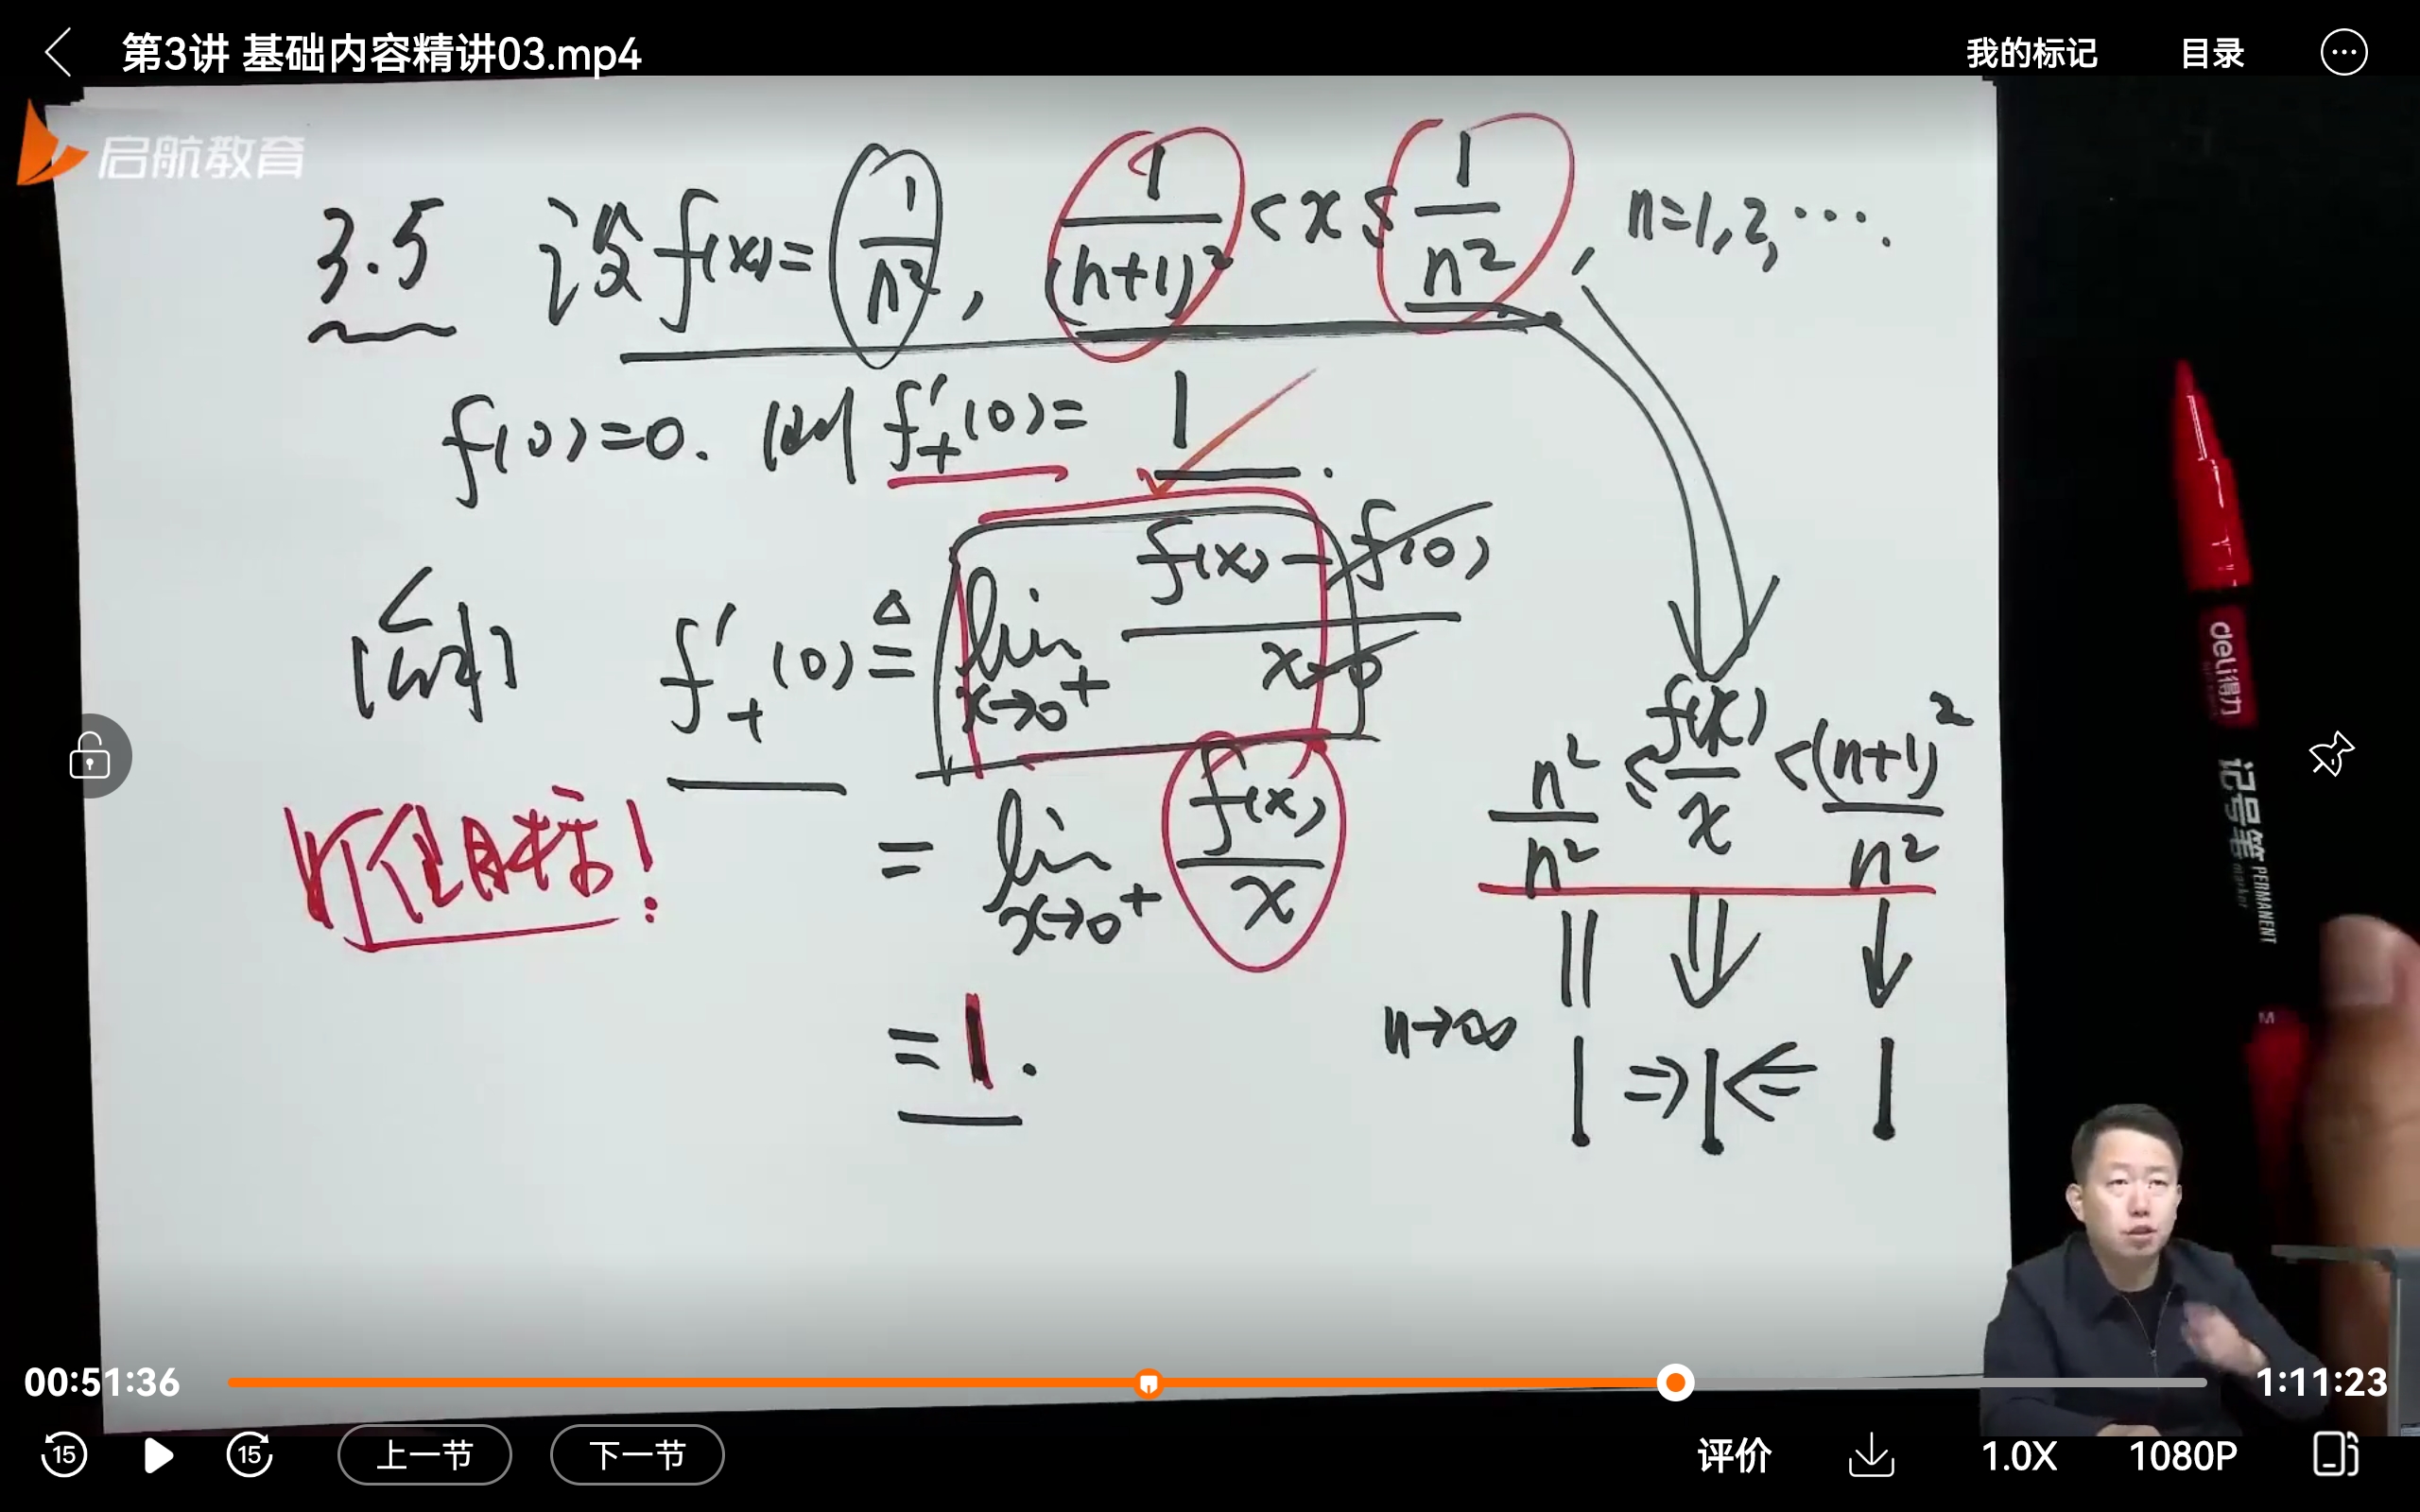 第3讲 基础内容精讲03.mp4
我的标记 目录
启航教育
3.5 设 f(x)= 1/n², 1/(n+1)² < x ≤ 1/n², n=1,2,….
f(0)=0. 则 f'₊(0)= 1 .
f'₊(0) ≜ lim x→0⁺ f(x)-f(0) / x-0
n²/n² ≤ f(x)/x < (n+1)²/n²
盯住目标!
= lim x→0⁺ f(x)/x
n→∞ 1 ⇒ 1 ⇐ 1
= 1.
deli得力
记号笔 PERMANENT marker
M
00:51:36
1:11:23
15 15 上一节 下一节 评价 1.0X 1080P